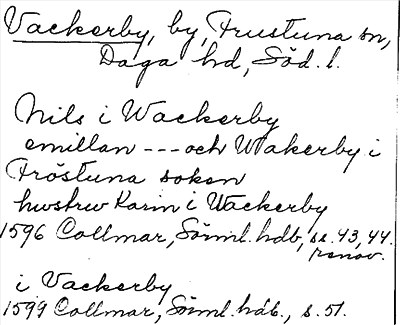 Vackerby, by, Frustuna sn,
Daga hd, Söd. l.
Nils i Wackerby
emillan --- och Wakerby i
Fröstuna soken
hwstrw Karin i Wackerby
1596 Collmar, Sörml. hdb, ss. 43, 44.
renov.
i Vackerby
1599 Collmar, Sörml. hdb., s. 51.